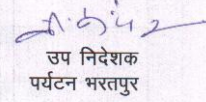 उप निदेशक
पर्यटन भरतपुर